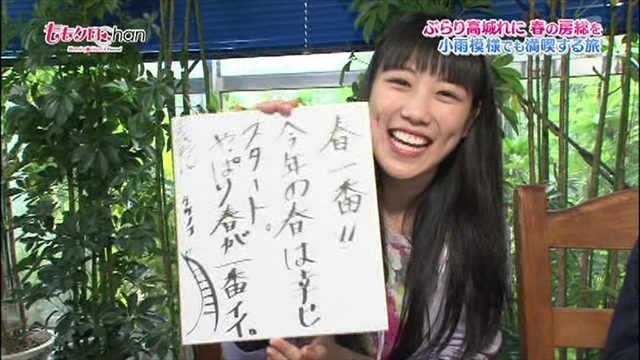 ももクロchan
ぶらり高城れに 春の房総を
小雨模様でも満喫する旅
春一番!!
今年の春は幸じ
スタート。
やっぱり春が一番イイ。